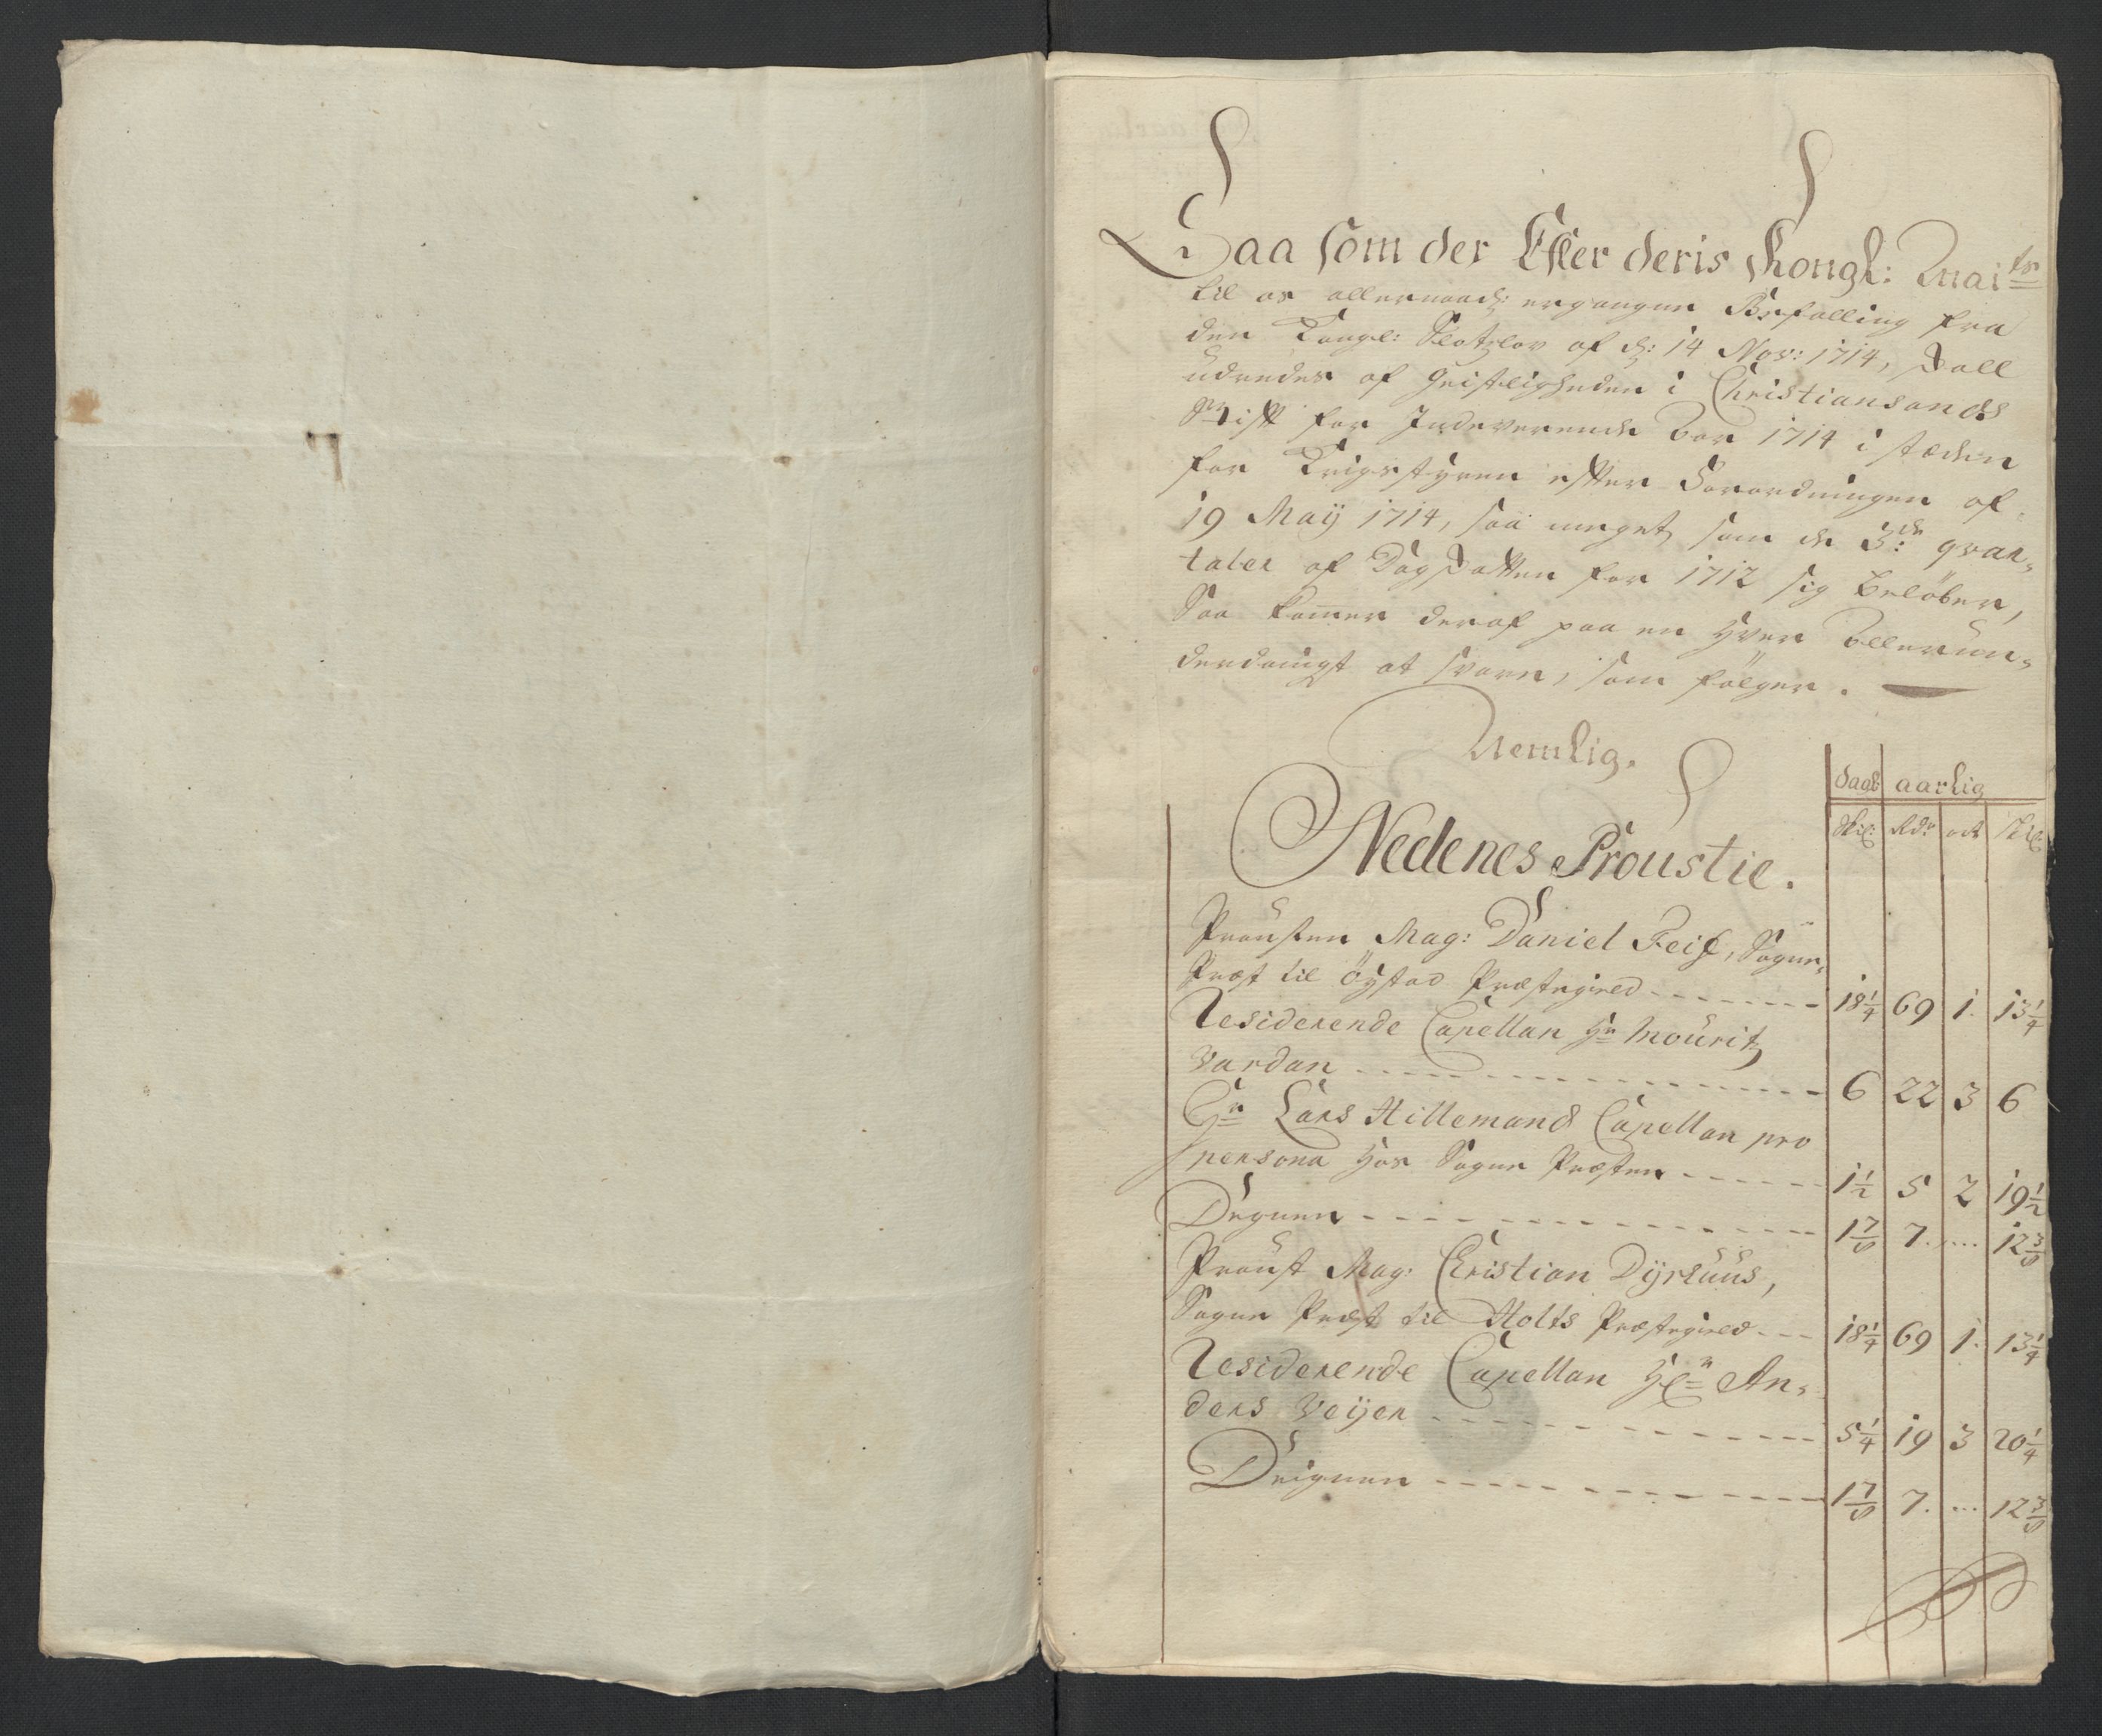 Saa som der Efter deris Kongl: Mai<sup>ts</sup>
til os allernaad: ergangne Befalling fra
den Kongl: Slotzlov af d: 14 Nov: 1714, skall
udredes af Geistligheden i Christiansands
Stift for Indeverende Aar 1714 i stæden
for Krigsstyren efter Forordningen af
19 Maij 1714, saa meget som de 3<sup>de</sup> qvar-
taler af Dagskatten for 1712 sig beløber,
Saa kommer deraf paa en hver Allerun-
derdanigst at svare, som følger.
Nemlig.
dagl: aarlig
Skil: Rdr ort Skil
Nedenes Proustie.
Prousten Mag: Daniel Feif, Sogne-
Præst til Öÿstad Præstegield - - - 18 1/4 69 1. 13 1/4
Residerende Capellan Hr Mouritz
Vardan - - - 6 22 3 6
Hr Lars Hillemand Capellan pro
persona hos Sogne Præsten - - - 1 1/2 5 2 19 1/2
Degnen - - - 1 7/8 7. ... 12 3/8
Proust Mag: Christian Dyrhuus,
Sogne Præst til Holts Præstegield - - - 18 1/4 69 1. 13 1/4
Residerende Capellan Hr An-
ders Veÿer - - - 5 1/4 19 3 20 1/4
Deignen - - - 1 7/8 7. ... 12 3/8